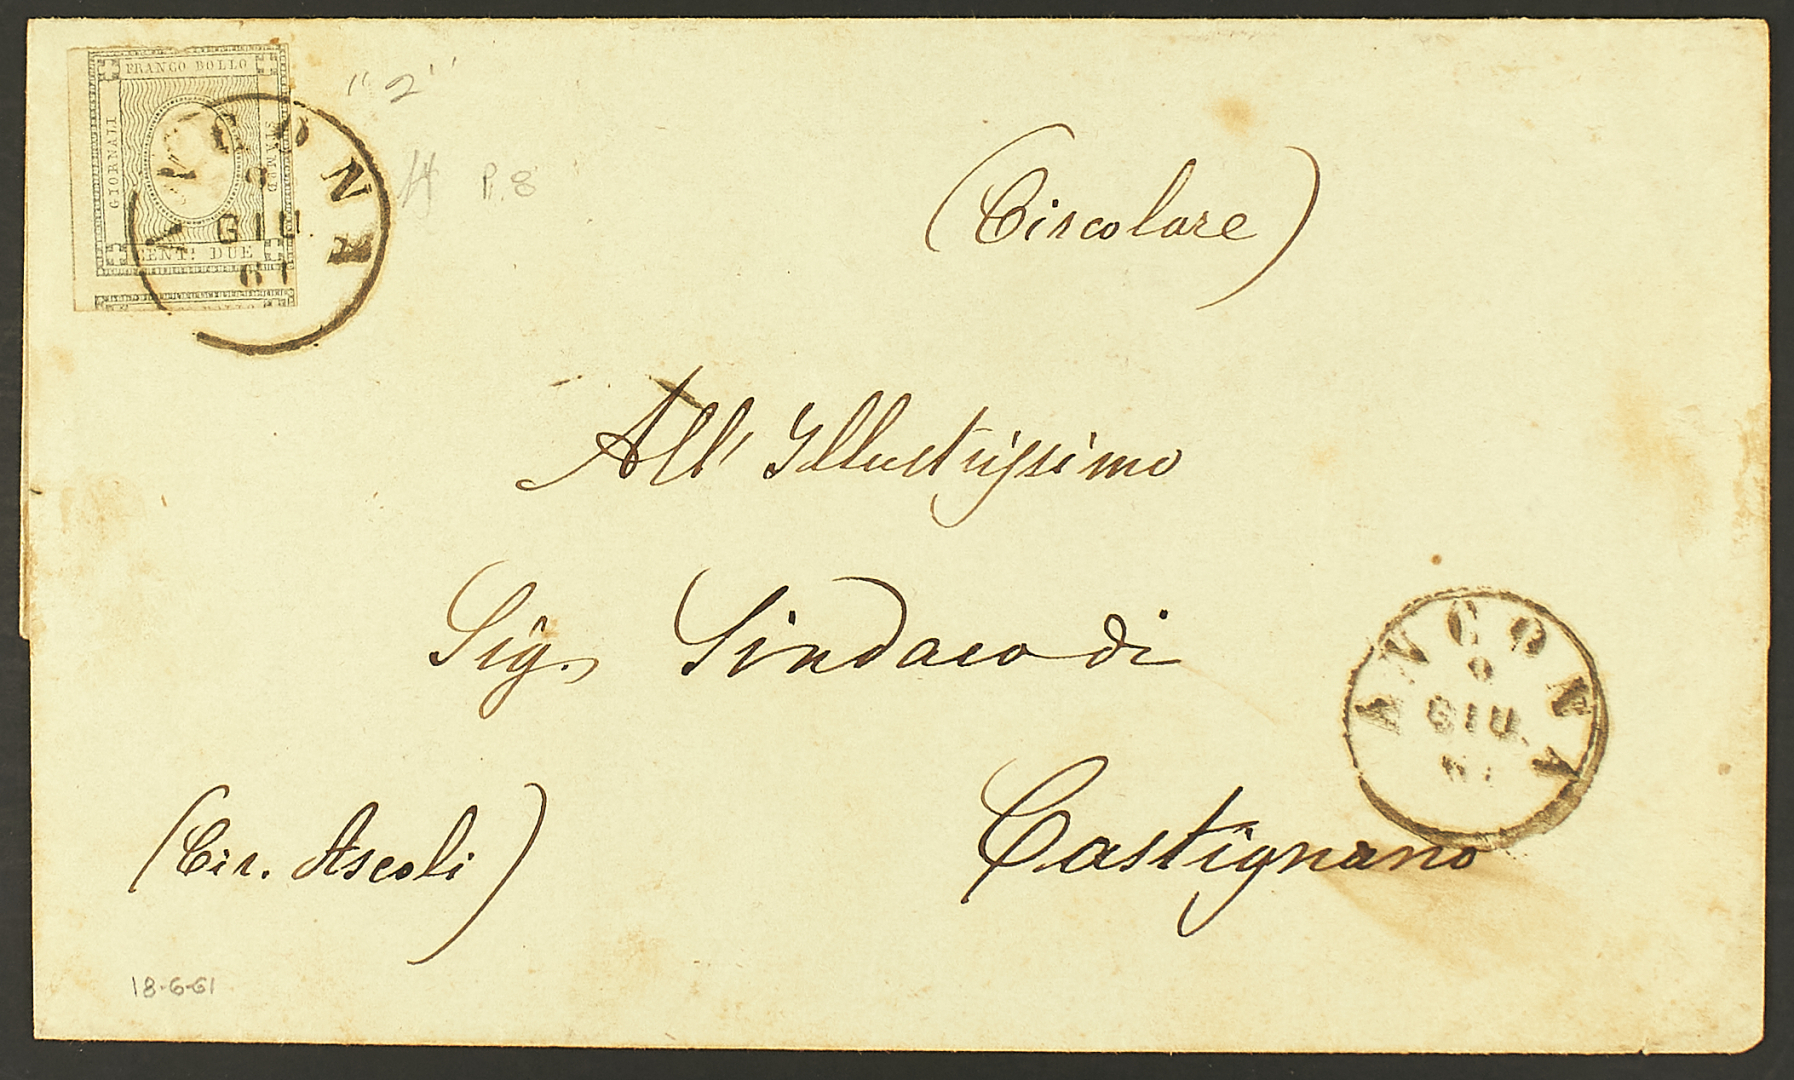 FRANCO BOLLO
GIORNALI
STAMPE
CENT: DUE
ANCONA
8
GIU.
61
"2"
P. 8
(Circolare)
All' Illustrissimo
Sig. Sindaco di
Castignano
(Cir. Ascoli)
ANCONA
8
GIU.
61
18-6-61